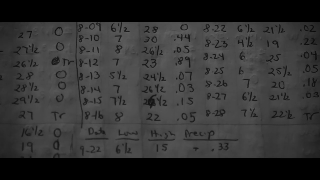 8-09 6½ 28 0 8-22 6½ 21½ .02
27 0 8-10 7 20 .44 8-23 4½ 19 .22
27½ 0 8-11 8 26½ .05 8-24 6 25 .04
26½ Tr 8-12 7 23 .89 8-25 6½ 20½
28 0 8-13 5½ 24½ .07 8-26 7 20 .18
28½ 0 8-14 7 26½ .03 8-27 6½ 21½ .03
29½ 0 8-15 7½ .15 7½ 22½ Tr
27 Tr 8-16 8 22 .05
16½ 0 Date Low High Precip
19 0 9-22 6½ 15 .33